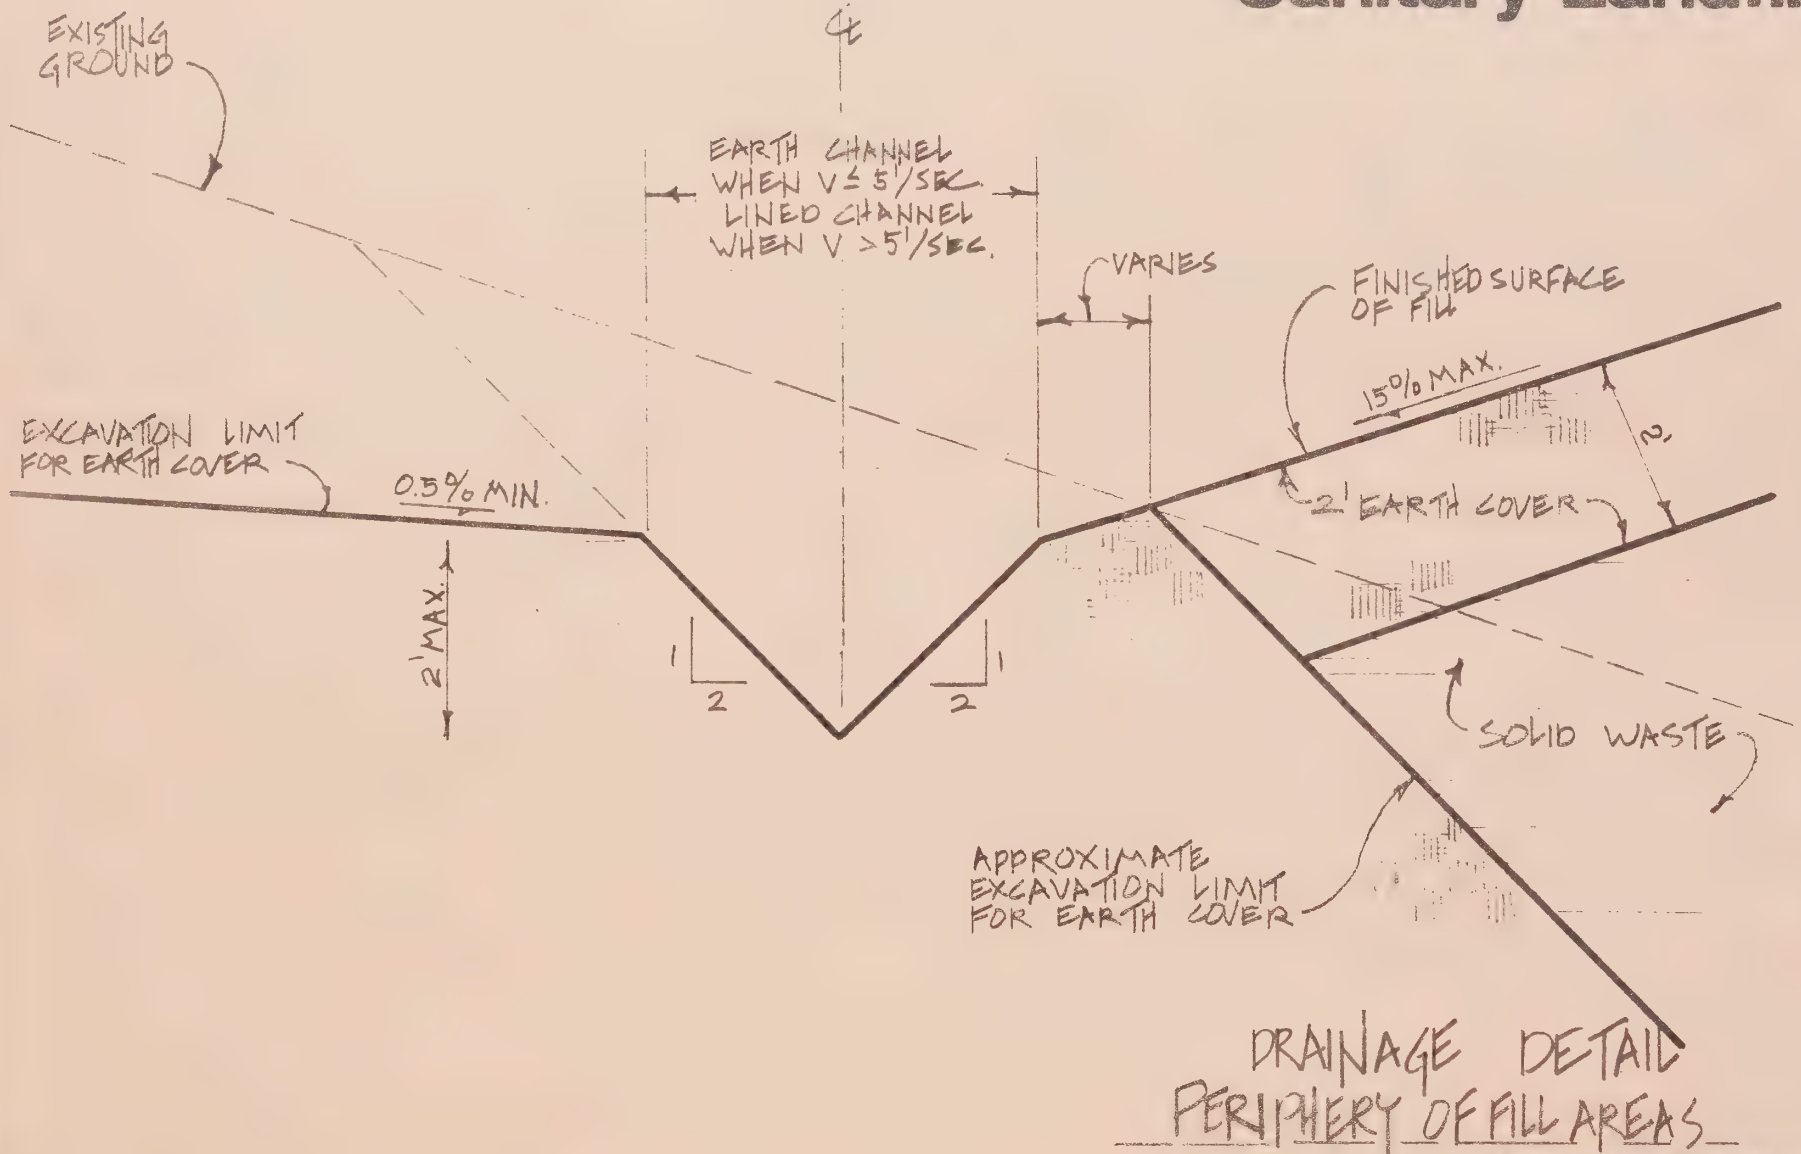 Sanitary Landfill
EXISTING
GROUND
℄
EARTH CHANNEL
WHEN V ≤ 5'/SEC.
LINED CHANNEL
WHEN V > 5'/SEC.
VARIES
FINISHED SURFACE
OF FILL
15% MAX.
2'
EXCAVATION LIMIT
FOR EARTH COVER
0.5% MIN.
2' EARTH COVER
2' MAX.
1
2
1
2
SOLID WASTE
APPROXIMATE
EXCAVATION LIMIT
FOR EARTH COVER
DRAINAGE DETAIL
PERIPHERY OF FILL AREAS